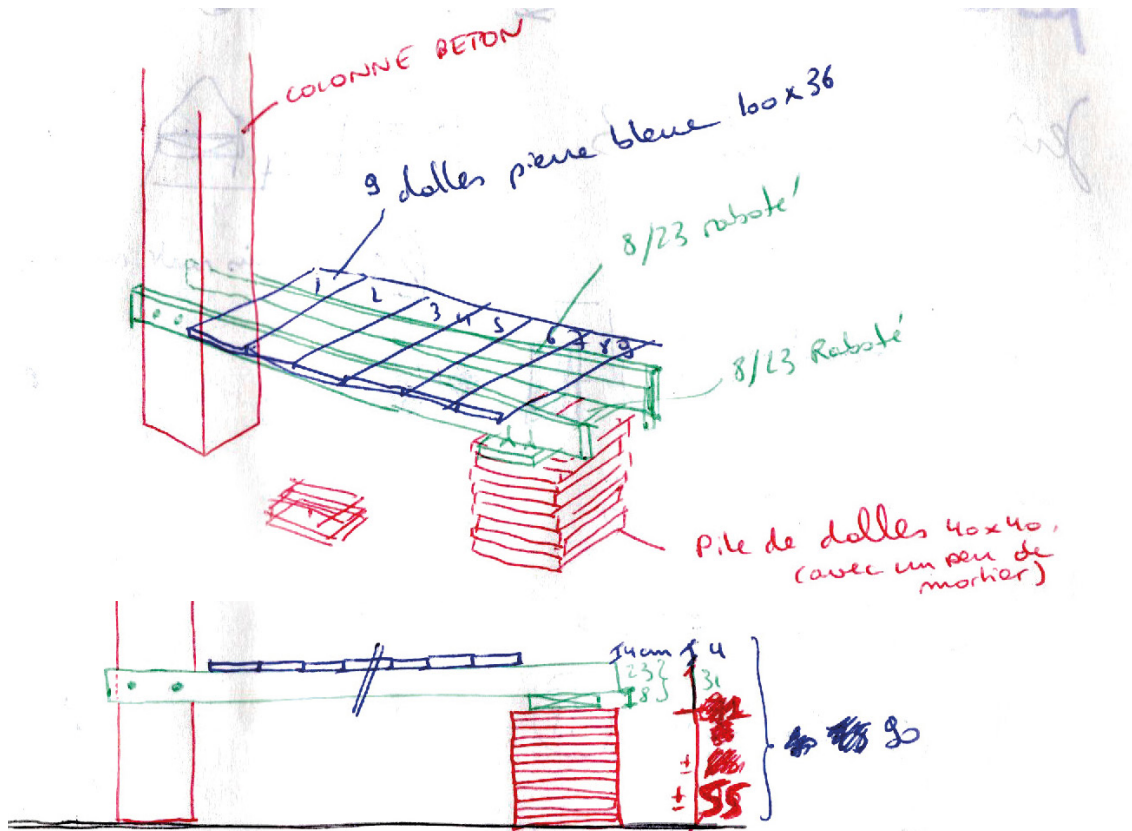 COLONNE BETON
9 dalles pierre bleue 100x36
8/23 raboté
1 2 3 4 5 6 7 8 9
8/23 Raboté
Pile de dalles 40x40,
(avec un peu de
mortier)
4cm 4
23
8
31
±
± 55
90